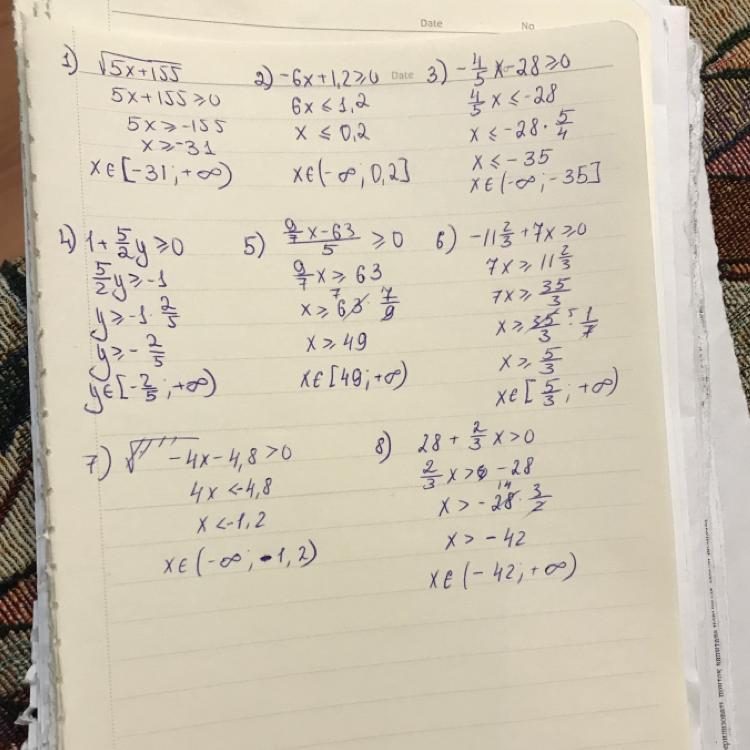 Date
No
Date
1) √5x+155
5x+155⩾0
5x⩾-155
x⩾-31
x∈[-31;+∞)
2) -6x+1,2⩾0
6x⩽1,2
x⩽0,2
x∈(-∞;0,2]
3) -4/5x-28⩾0
4/5x⩽-28
x⩽-28·5/4
x⩽-35
x∈(-∞;-35]
4) 1+5/2y⩾0
5/2y⩾-1
y⩾-1·2/5
y⩾-2/5
y∈[-2/5;+∞)
5) (9/7x-63)/5⩾0
9/7x⩾63
x⩾63 7·7/9
x⩾49
x∈[49;+∞)
6) -11 2/3+7x⩾0
7x⩾11 2/3
7x⩾35/3
x⩾35/3 5·1/7
x⩾5/3
x∈[5/3;+∞)
7) √ -4x-4,8>0
4x<-4,8
x<-1,2
x∈(-∞;-1,2)
8) 28+2/3x>0
2/3x>-28
x>-28 14·3/2
x>-42
x∈(-42;+∞)